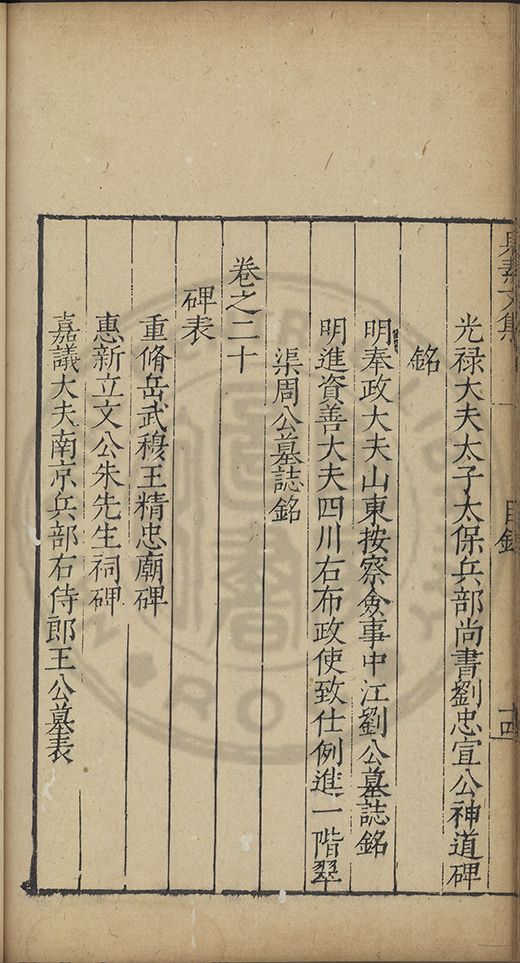 光禄大夫太子太保兵部尚書劉忠宣公神道碑
銘
明奉政大夫山東按察僉事中江劉公墓誌銘
明進資善大夫四川右布政使致仕例進一階翠
渠周公墓誌銘
卷之二十
碑表
重脩岳武穆王精忠廟碑
惠新立文公朱先生祠碑
嘉議大夫南京兵部右侍郎王公墓表